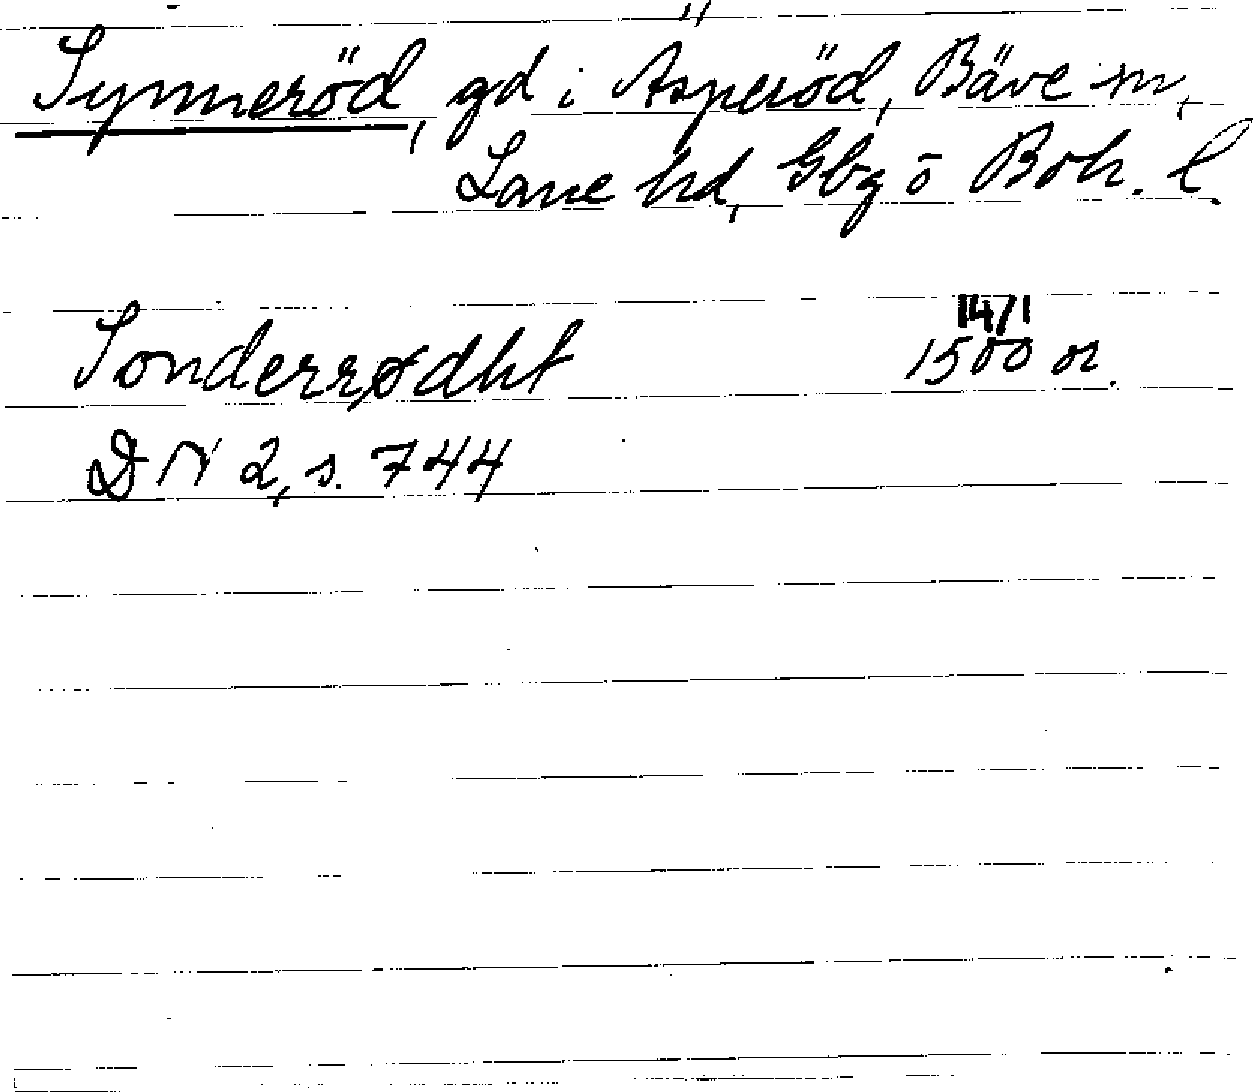 Synneröd, gd i Asperöd, Bäve sn,
Lane hd, Gbg o Boh. l.
Sonderrødht 1471
1500 or.
DN 2, s. 744